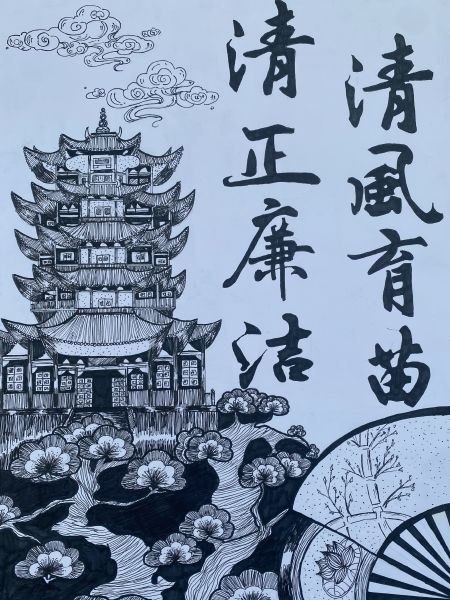 清風育苗
清正廉洁